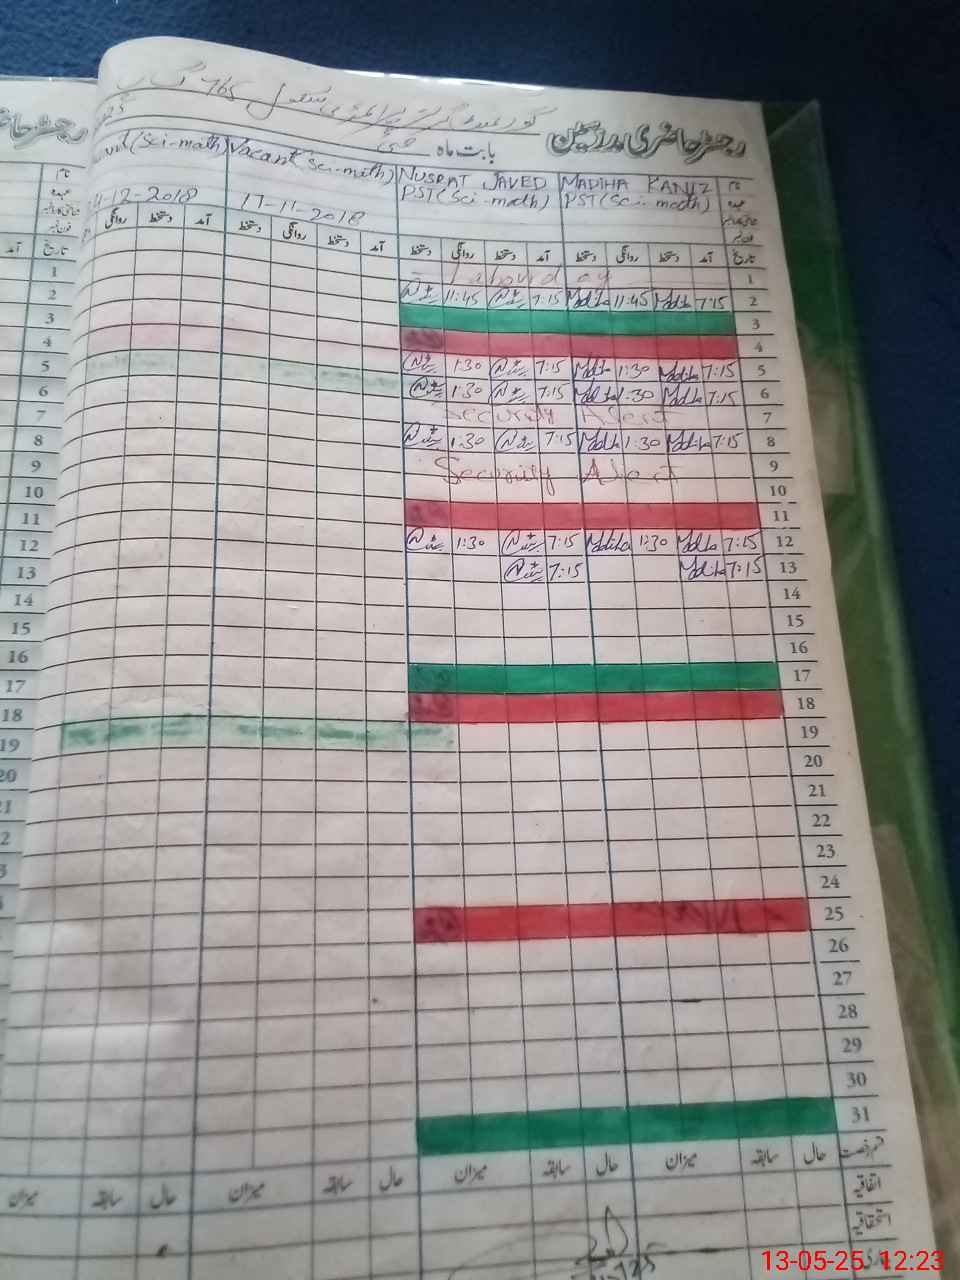 گورنمنٹ گرلز پرائمری سکول 765 گ ب
رجسٹر حاضری مدرسین
بابت ماہ مئی
(Sci-math) Vacant (Sci-math) NUSRAT JAVED MADIHA KANIZ نام
PST(Sci-math) PST(Sci-math) عہدہ
-12-2018 17-11-2018
روانگی دستخط آمد دستخط روانگی دستخط آمد دستخط روانگی دستخط آمد دستخط روانگی دستخط آمد تاریخ
1 Labour day 1
2 11:45 7:15 Madiha 11:45 Madiha 7:15 2
3 3
4 4
5 1:30 7:15 Madiha 1:30 Madiha 7:15 5
6 1:30 7:15 Madiha 1:30 Madiha 7:15 6
7 Security Alert 7
8 1:30 7:15 Madiha 1:30 Madiha 7:15 8
9 Security Alert 9
10 10
11 11
12 1:30 7:15 Madiha 1:30 Madiha 7:15 12
13 7:15 Madiha 7:15 13
14 14
15 15
16 16
17 17
18 18
19 19
20 20
21
22
23
24
25
26
27
28
29
30
31
میزان سابقہ حال میزان سابقہ حال میزان سابقہ حال میزان سابقہ حال قسم رخصت
اتفاقیہ
استحقاقیہ
13-05-25 12:23